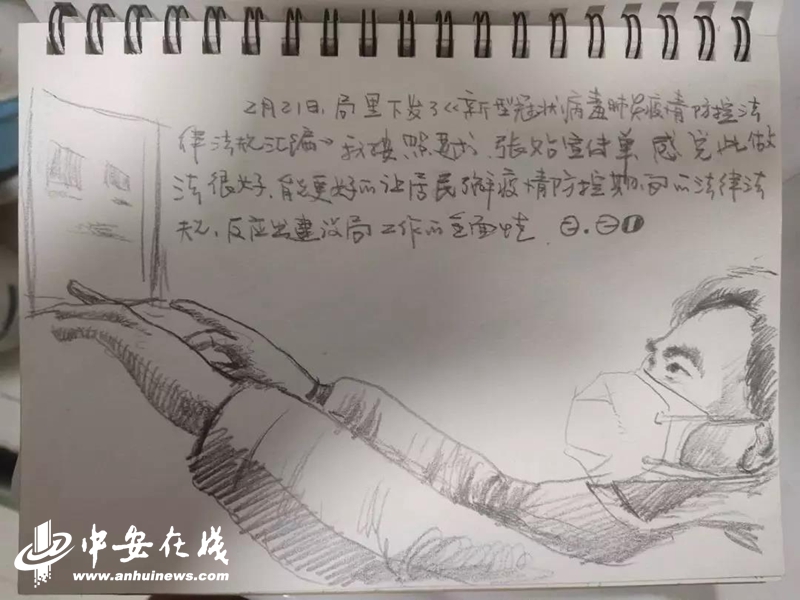 2月21日,局里下发了《新型冠状病毒肺炎疫情防控法
律法规汇编》我按照要求,张贴宣传单,感觉此做
法很好,能更好的让居民了解疫情防控期间的法律法
规,反应出建设局工作的全面性.
中安在线
www.anhuinews.com